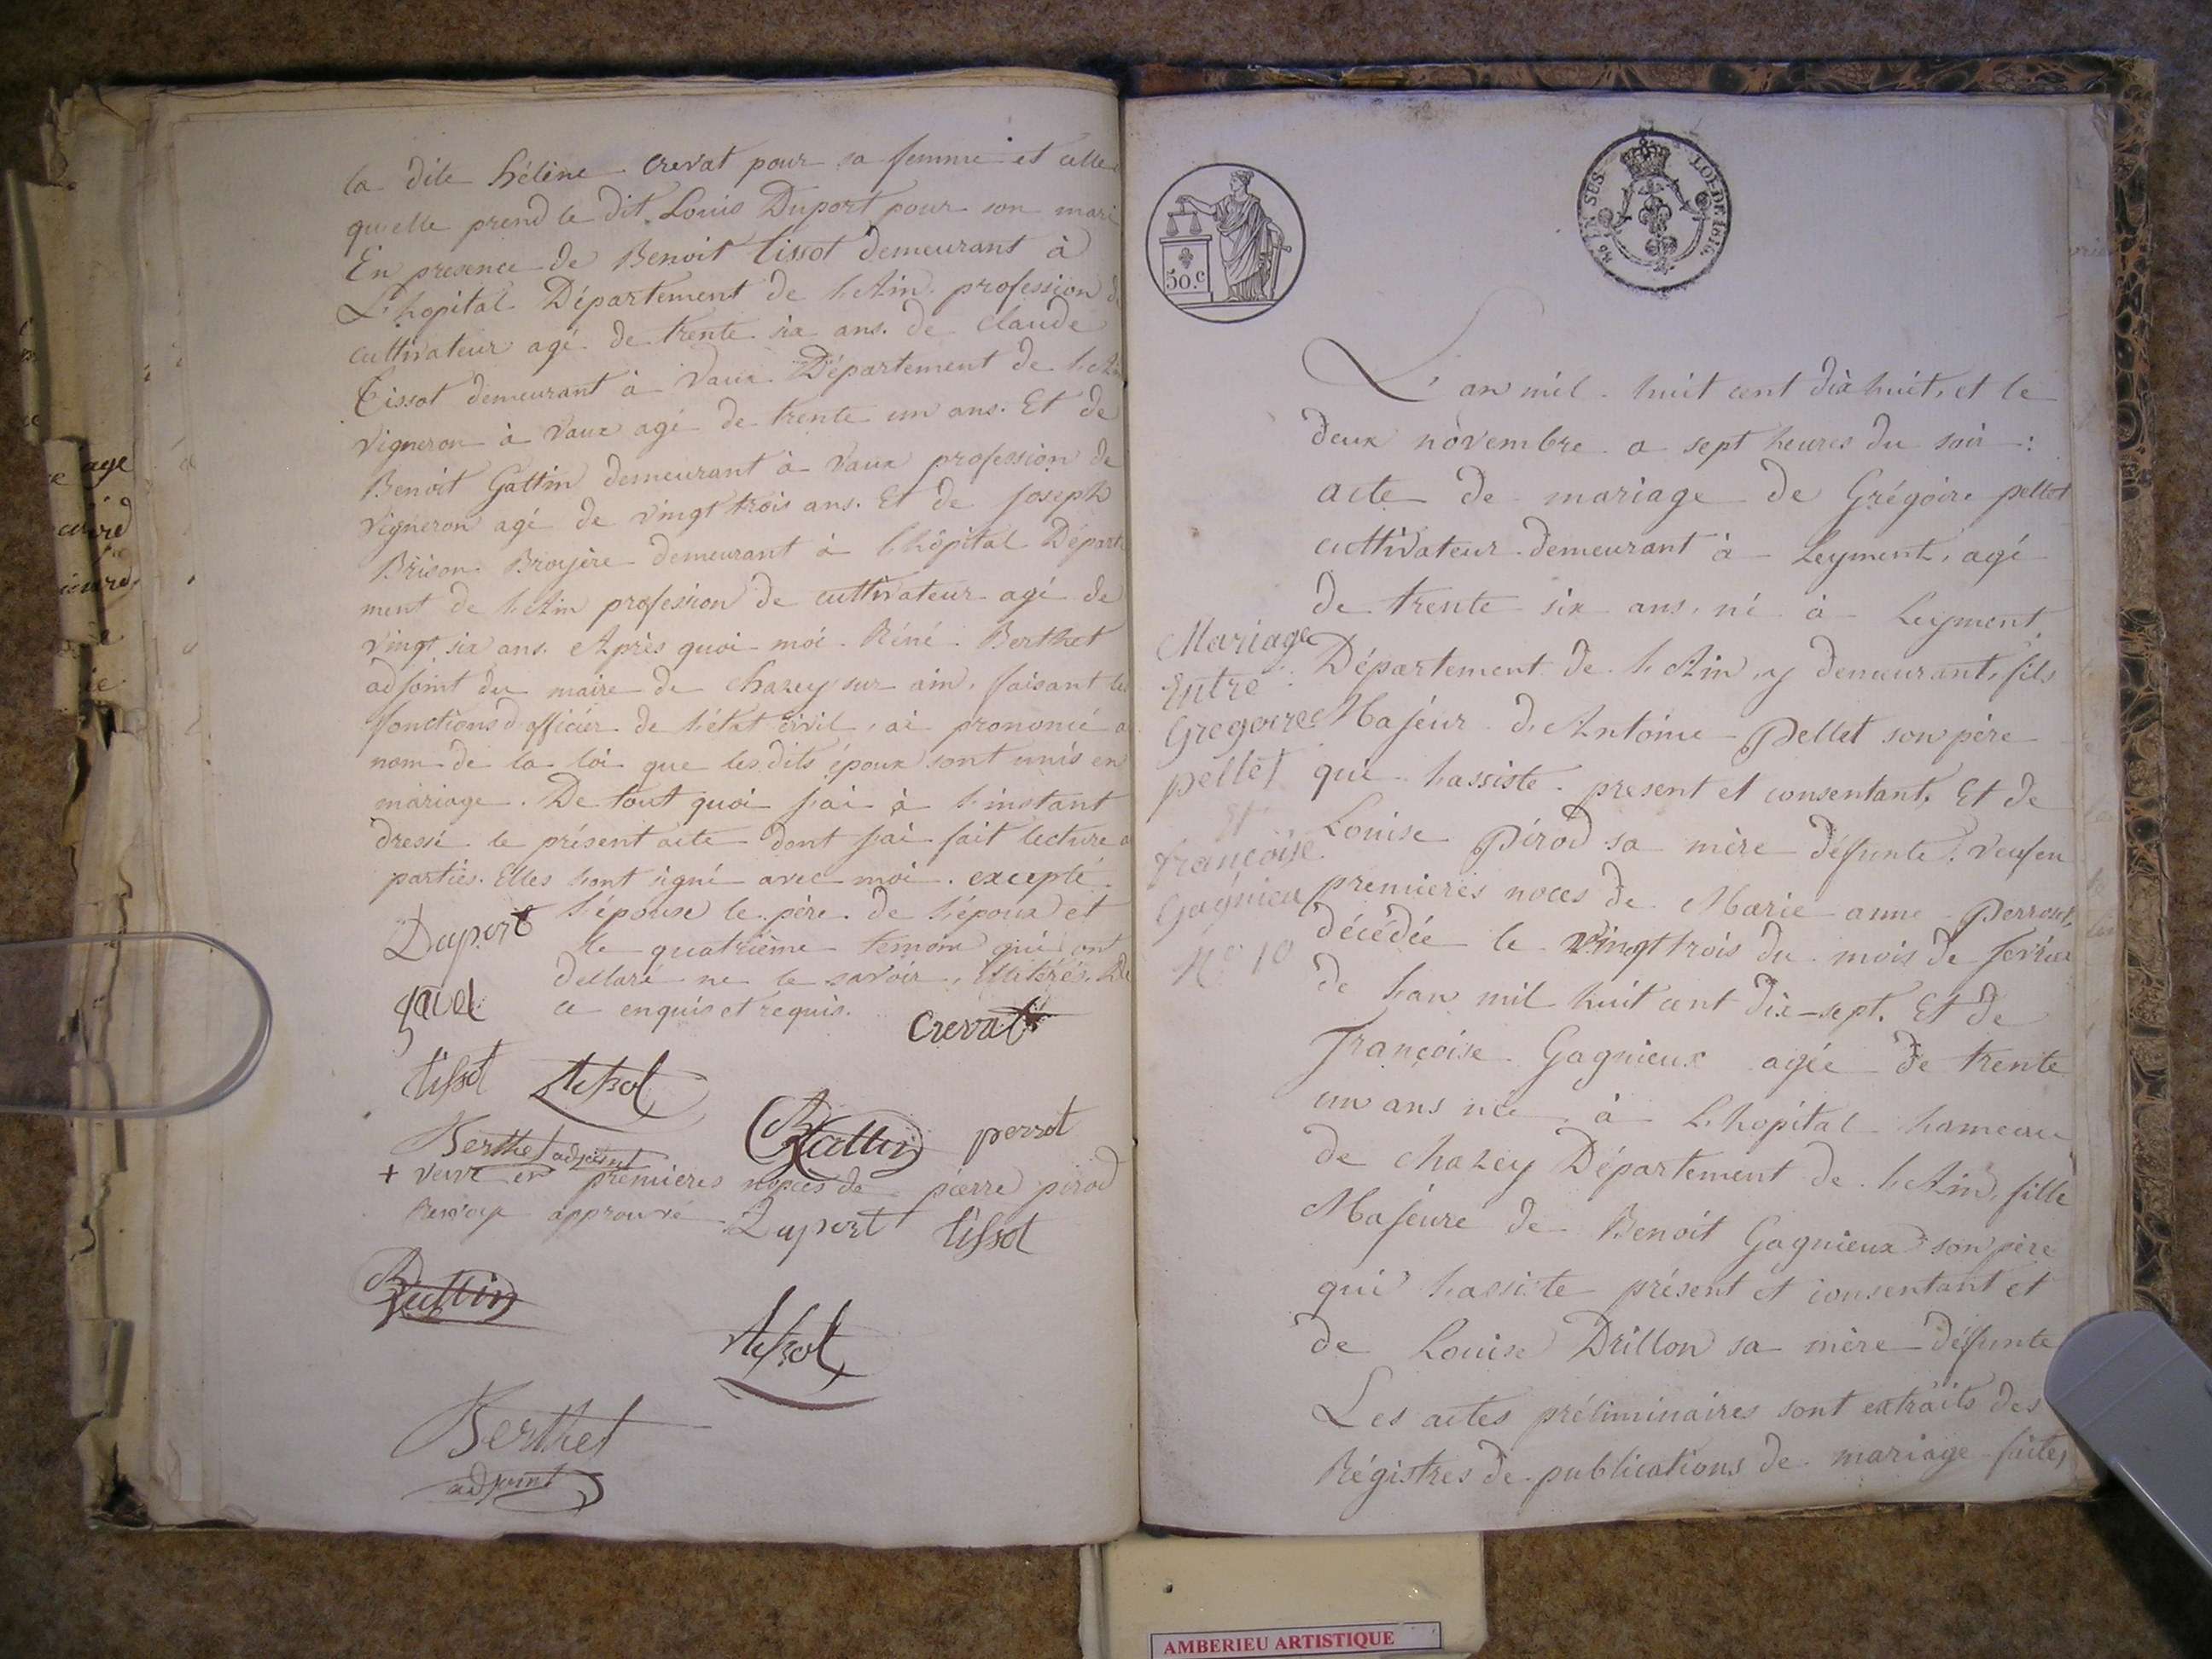 la dite hélène Crevat pour sa femme et celle
qu'elle prend le dit Louis Duport pour son mari
En presence de Benoit tissot demeurant à
L'hopital Département de L'Ain profession de
cultivateur agé de trente six ans. de Claude
Tissot demeurant à Vaux Département de L'Ain
vigneron à Vaux agé de trente un ans. Et de
Benoit Gattin demeurant à Vaux profession de
vigneron agé de vingt trois ans. Et de Joseph
Brison Broyère demeurant à L'hôpital Départe
ment de L'Ain profession de cultivateur agé de
vingt six ans. Après quoi moi Réné Berthet
adjoint du maire de Chazey sur ain, faisant les
fonctions d'officier de l'état civil, ai prononcé a
nom de la loi que les dits époux sont unis en
mariage. De tout quoi j'ai à l'instant
dressé le présent acte dont j'ai fait lecture a
parties. Elles l'ont signé avec moi. excepté
l'épouse le père de l'époux et
le quatrième temoin qui ont
déclaré ne le savoir, illitérés, De
ce enquis et requis.
Duport
Crevat
tissot
perrot
Berthet adjoint
+ veuve en premières nopces de pierre pirod
Renvoye approuvé
Duport tissot
Berthet
adjoint
50.c
EN SUS LOI DE 1816
L'an mil huit cent dix huit, et le
deux novembre a sept heures du soir :
acte de mariage de Grégoire pellet
cultivateur demeurant à Leyment, agé
de trente six ans, né à Leyment
Département de L'Ain, y demeurant, fils
Majeur d'Antoine Pellet son père
qui l'assiste present et consentant, Et de
Louise Pérod sa mère défunte. Veuf en
premieres noces de Marie anne Perroset,
décédée le vingt trois du mois de fevrier
de l'an mil huit cent dix-sept. Et de
Françoise Gagnieux agée de trente
un ans née à L'hopital hameau
de Chazey Département de L'Ain, fille
Majeure de Benoit Gagnieux son père
qui l'assiste présent et consentant et
de Louise Drillon sa mère défunte
Les actes préliminaires sont extraits des
Régistres de publications de mariage faites
Mariage
Entre
Gregoire
pellet
Et
françoise
Gagnieu
N° 10
AMBERIEU ARTISTIQUE